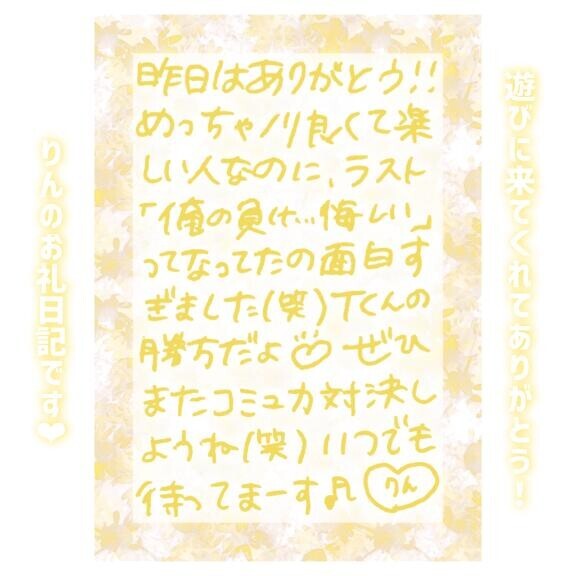 遊びに来てくれてありがとう！
昨日はありがとう!!
めっちゃノリ良くて楽
しい人なのに、ラスト
「俺の負け…悔しい」
ってなってたの面白す
ぎました(笑)Tくんの
勝ちだよ♡ぜひ
またコミュ力対決し
ようね(笑)いつでも
待ってまーす♬りん
りんのお礼日記です❤